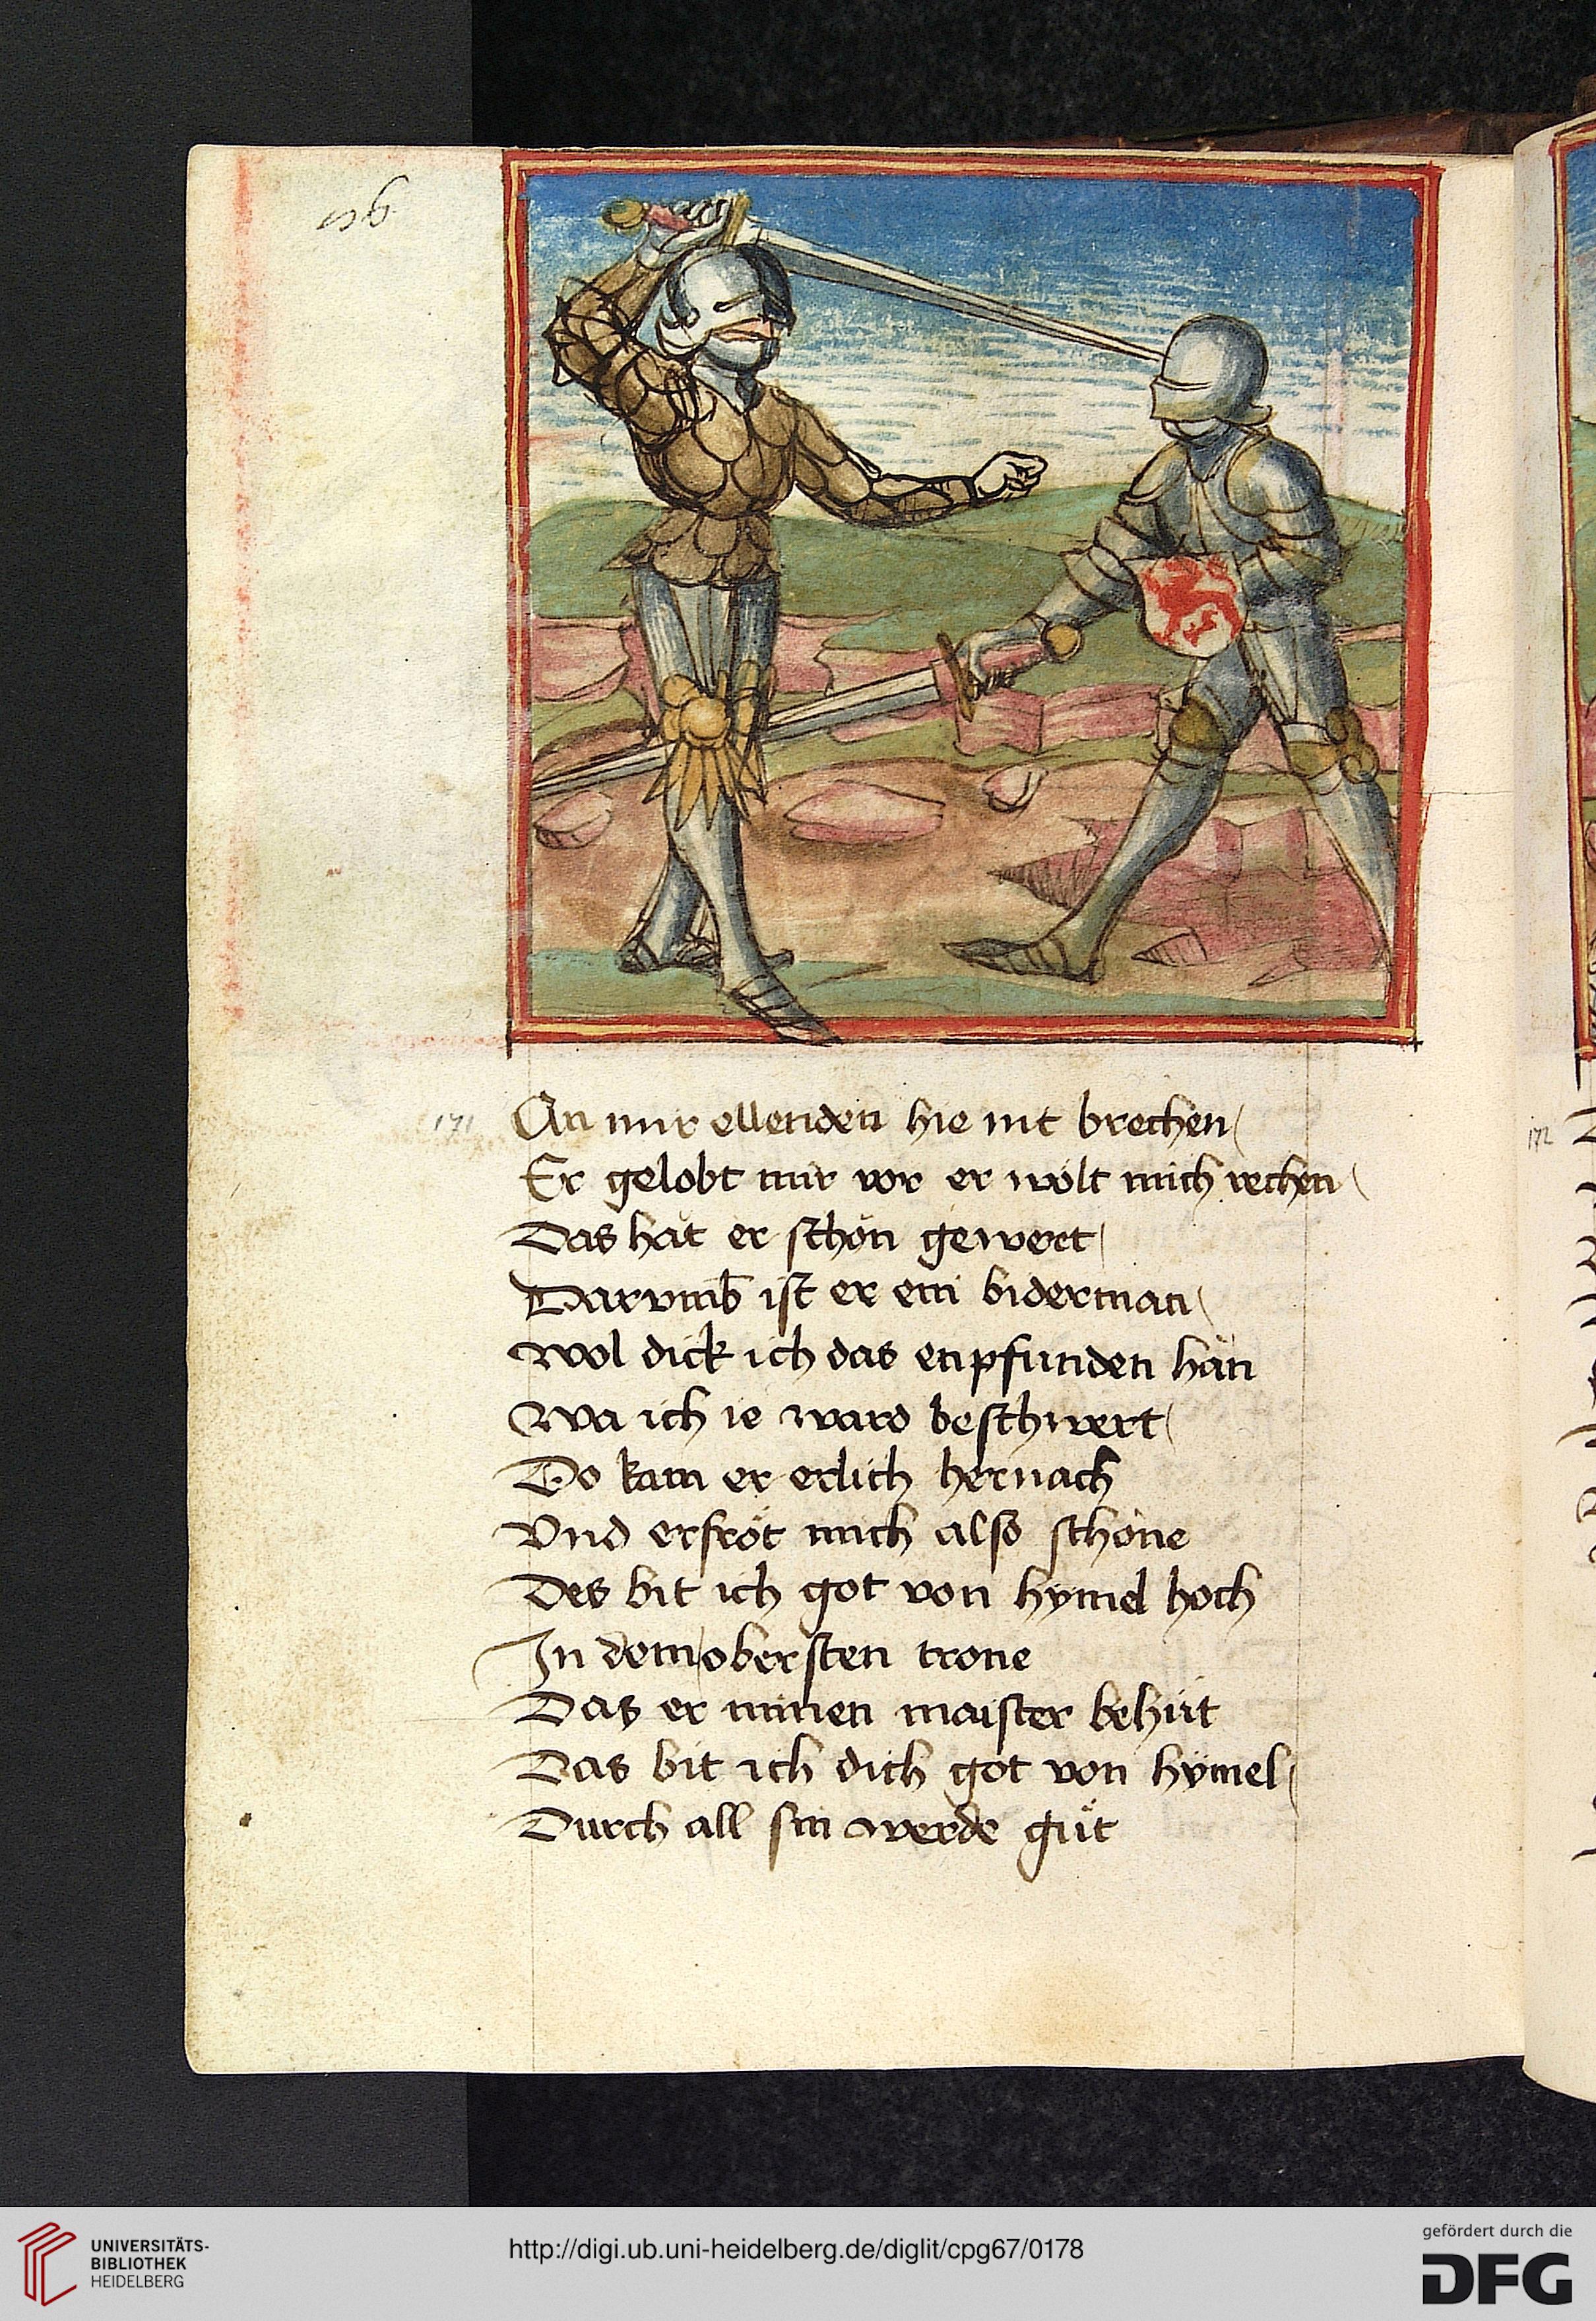 171
An mir ellenden hie nit brechen
Er gelobt mir vor er wölt mich rechen
Das hät er schön gewert
Darvmb ist er ein biderman
Wol dick ich das enpfunden hän
Wa ich ie ward beschwert
Do kam er erlich hernach
Vnd erfröt mich also schöne
Des bit ich got von hymel hoch
In dem obersten trone
Das er minen maister behüt
Das bit ich dich got von hÿmel
Durch all sin werde güt
172
UNIVERSITÄTS-
BIBLIOTHEK
HEIDELBERG
http://digi.ub.uni-heidelberg.de/diglit/cpg67/0178
gefördert durch die
DFG